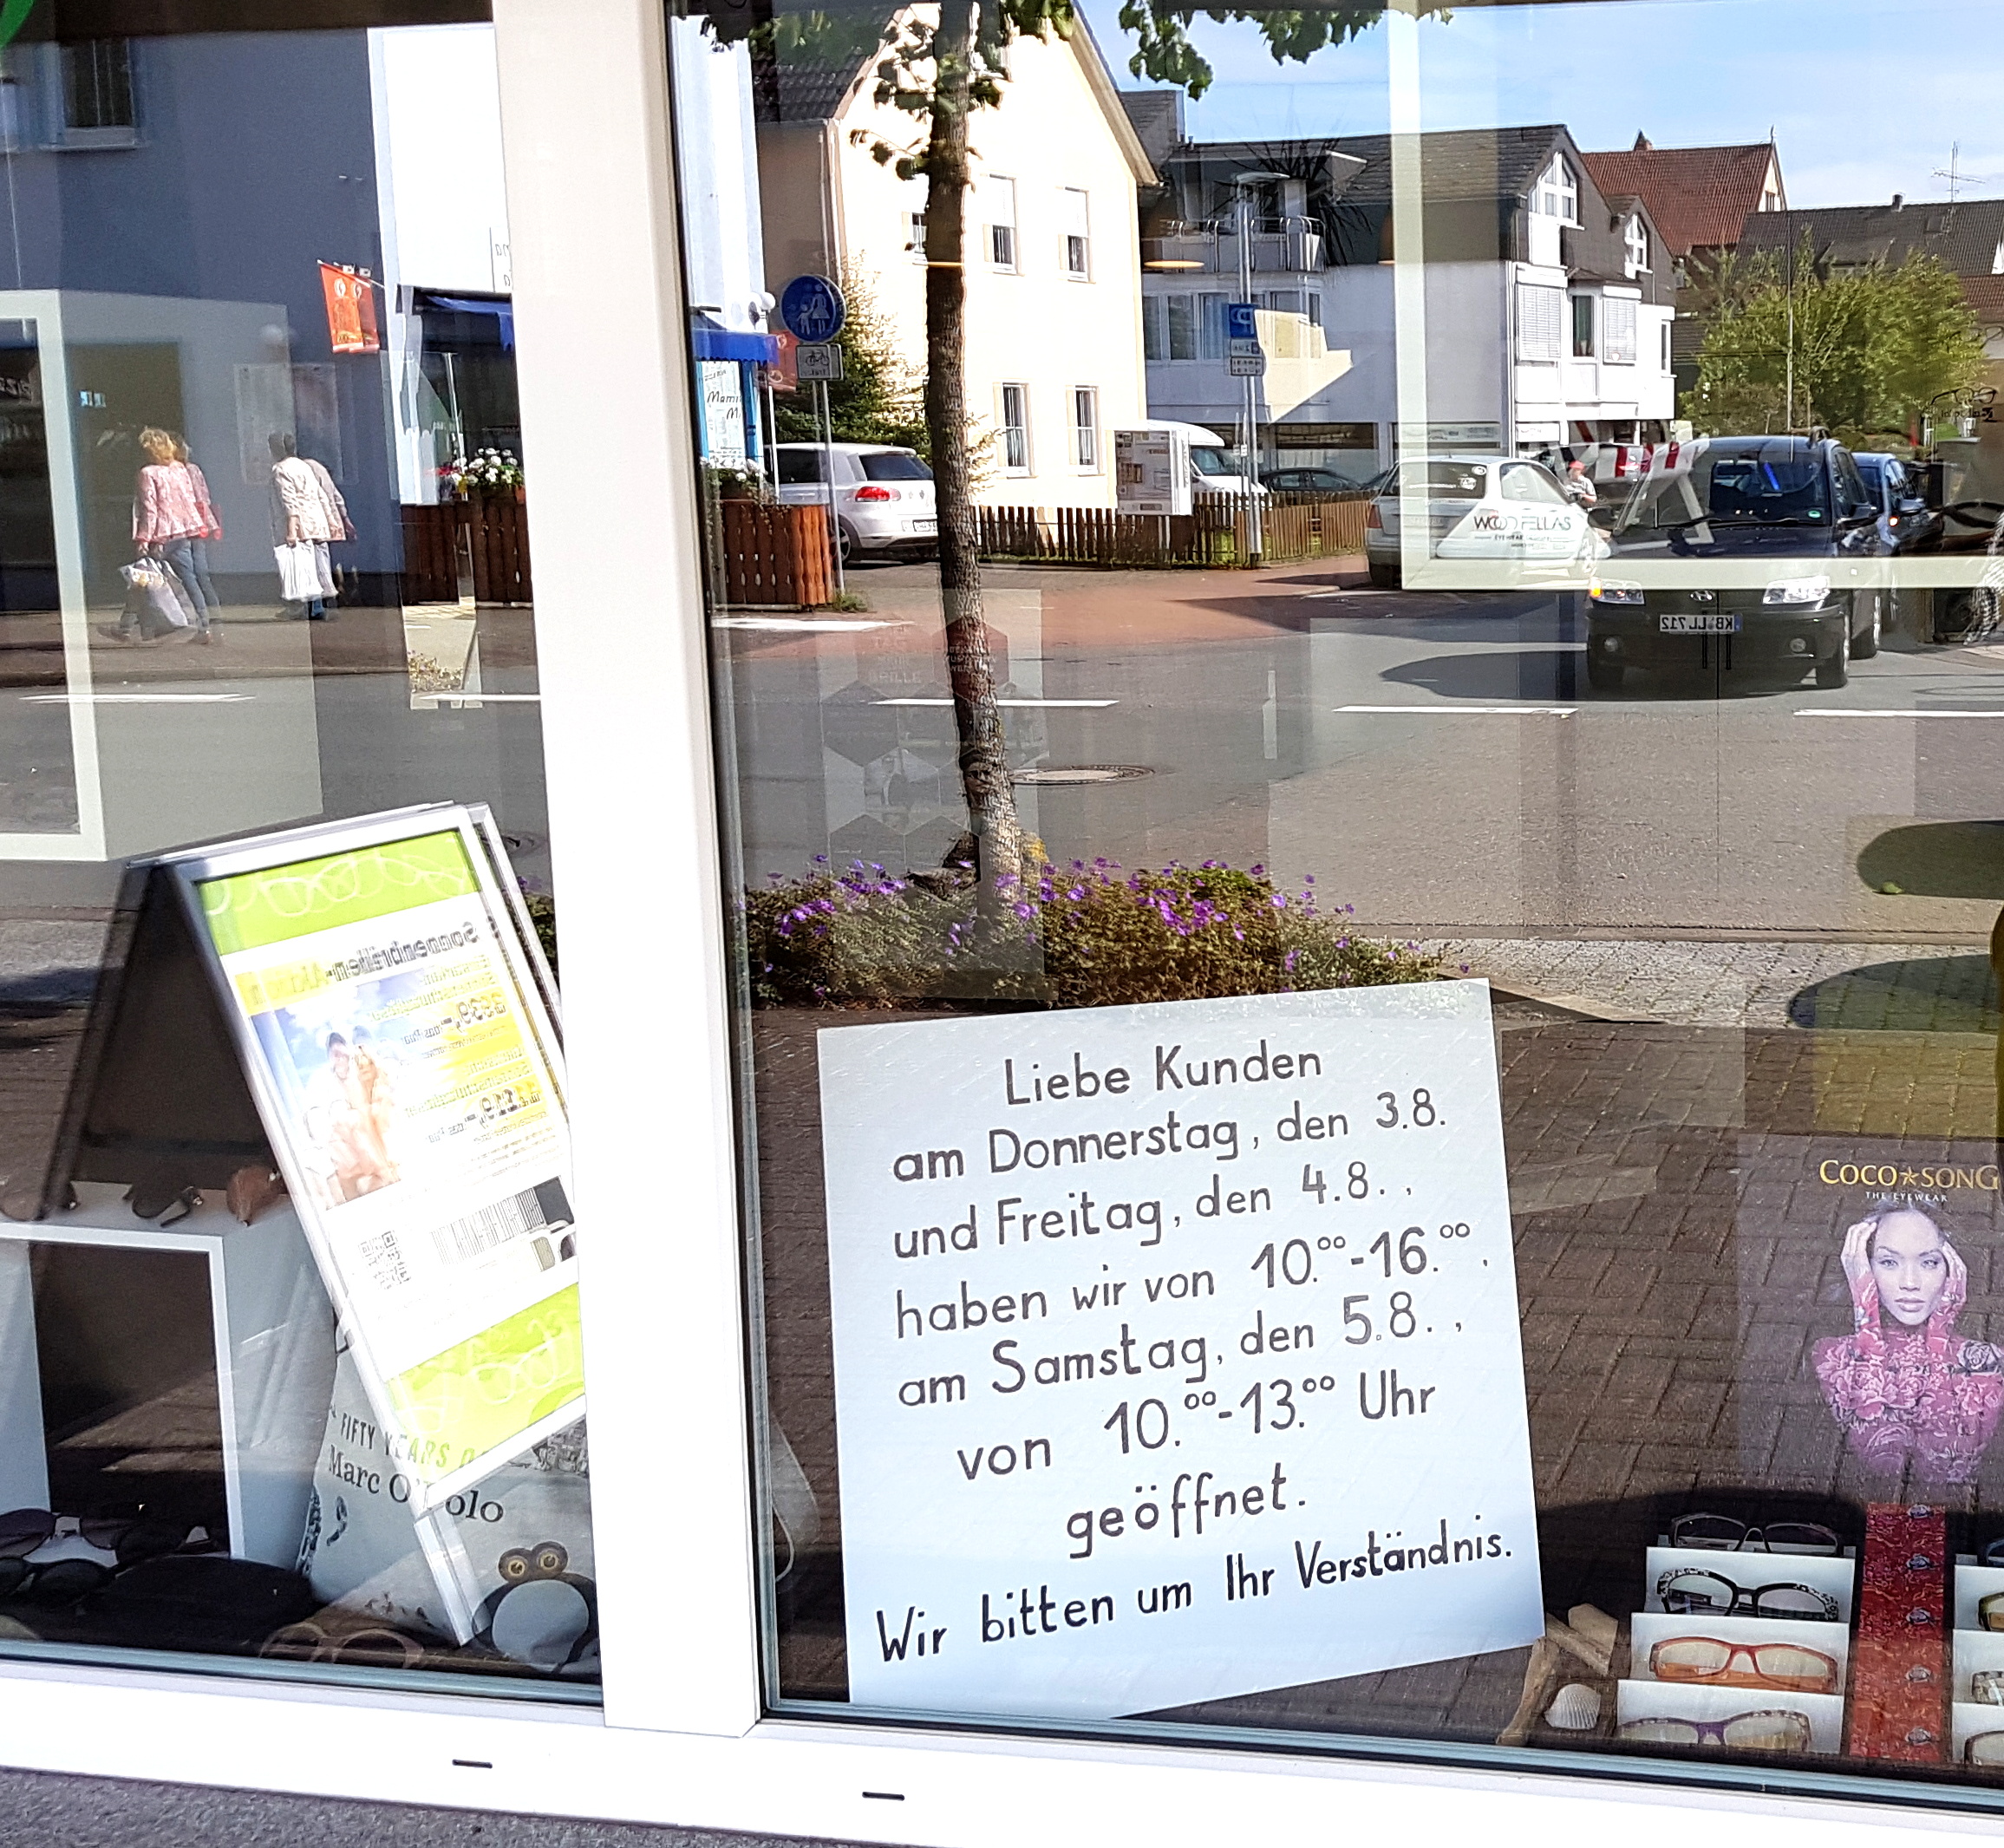 Liebe Kunden
am Donnerstag, den 3.8.
und Freitag, den 4.8.,
haben wir von 10.⁰⁰-16.⁰⁰.
am Samstag, den 5.8.,
von 10.⁰⁰-13.⁰⁰ Uhr
geöffnet.
Wir bitten um Ihr Verständnis.
COCO☆SONG
THE EYEWEAR
WOOD FELLAS
EYEWEAR
KB LL 712
Sonnenbrillen-
FIFTY YEARS
Marc O'Polo